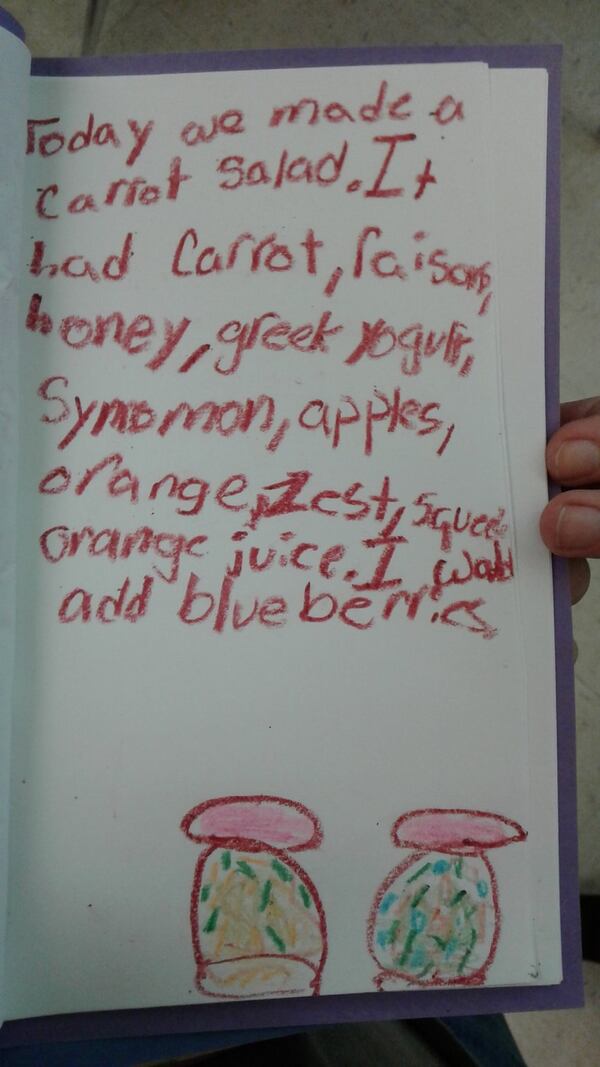 Today we made a
carrot salad. It
had Carrot, raisons,
honey, greek yogurt,
Synomon, apples,
orange, zest, squeed
orange juice. I
add blueberries